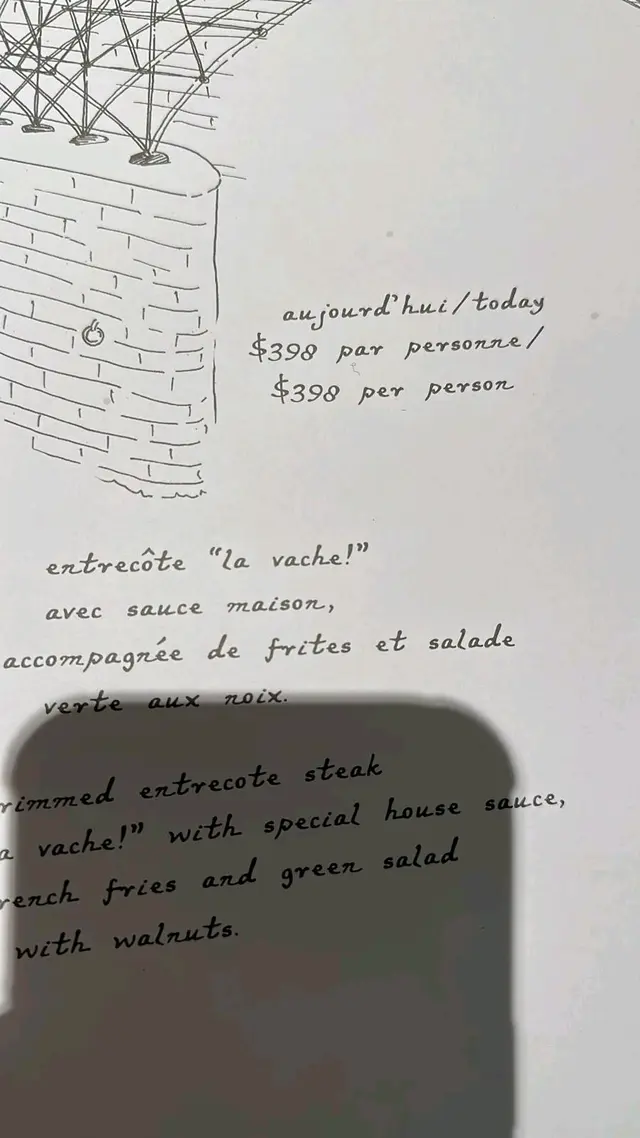 aujourd'hui/today
$398 par personne/
$398 per person
entrecôte "la vache!"
avec sauce maison,
accompagnée de frites et salade
verte aux noix.
entrecote steak
vache!" with special house sauce,
fries and green salad
with walnuts.